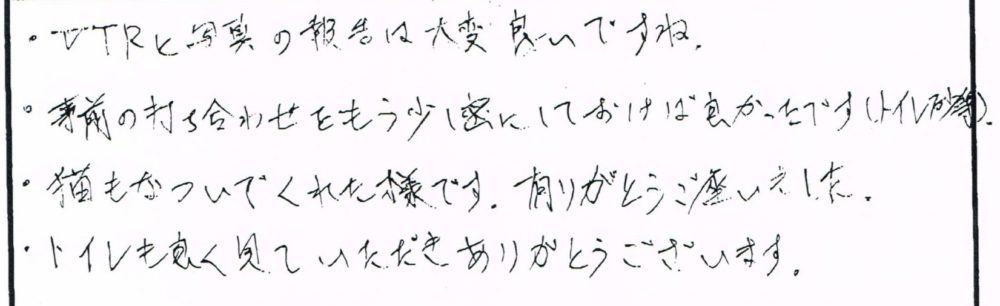 ・VTRと写真の報告は大変良いですね.
・事前の打ち合わせをもう少し密にしておけば良かったです(トイレ砂等).
・猫もなついでくれた様です.有りがとうご座いました.
・トイレも良く見ていただきありがとうございます.